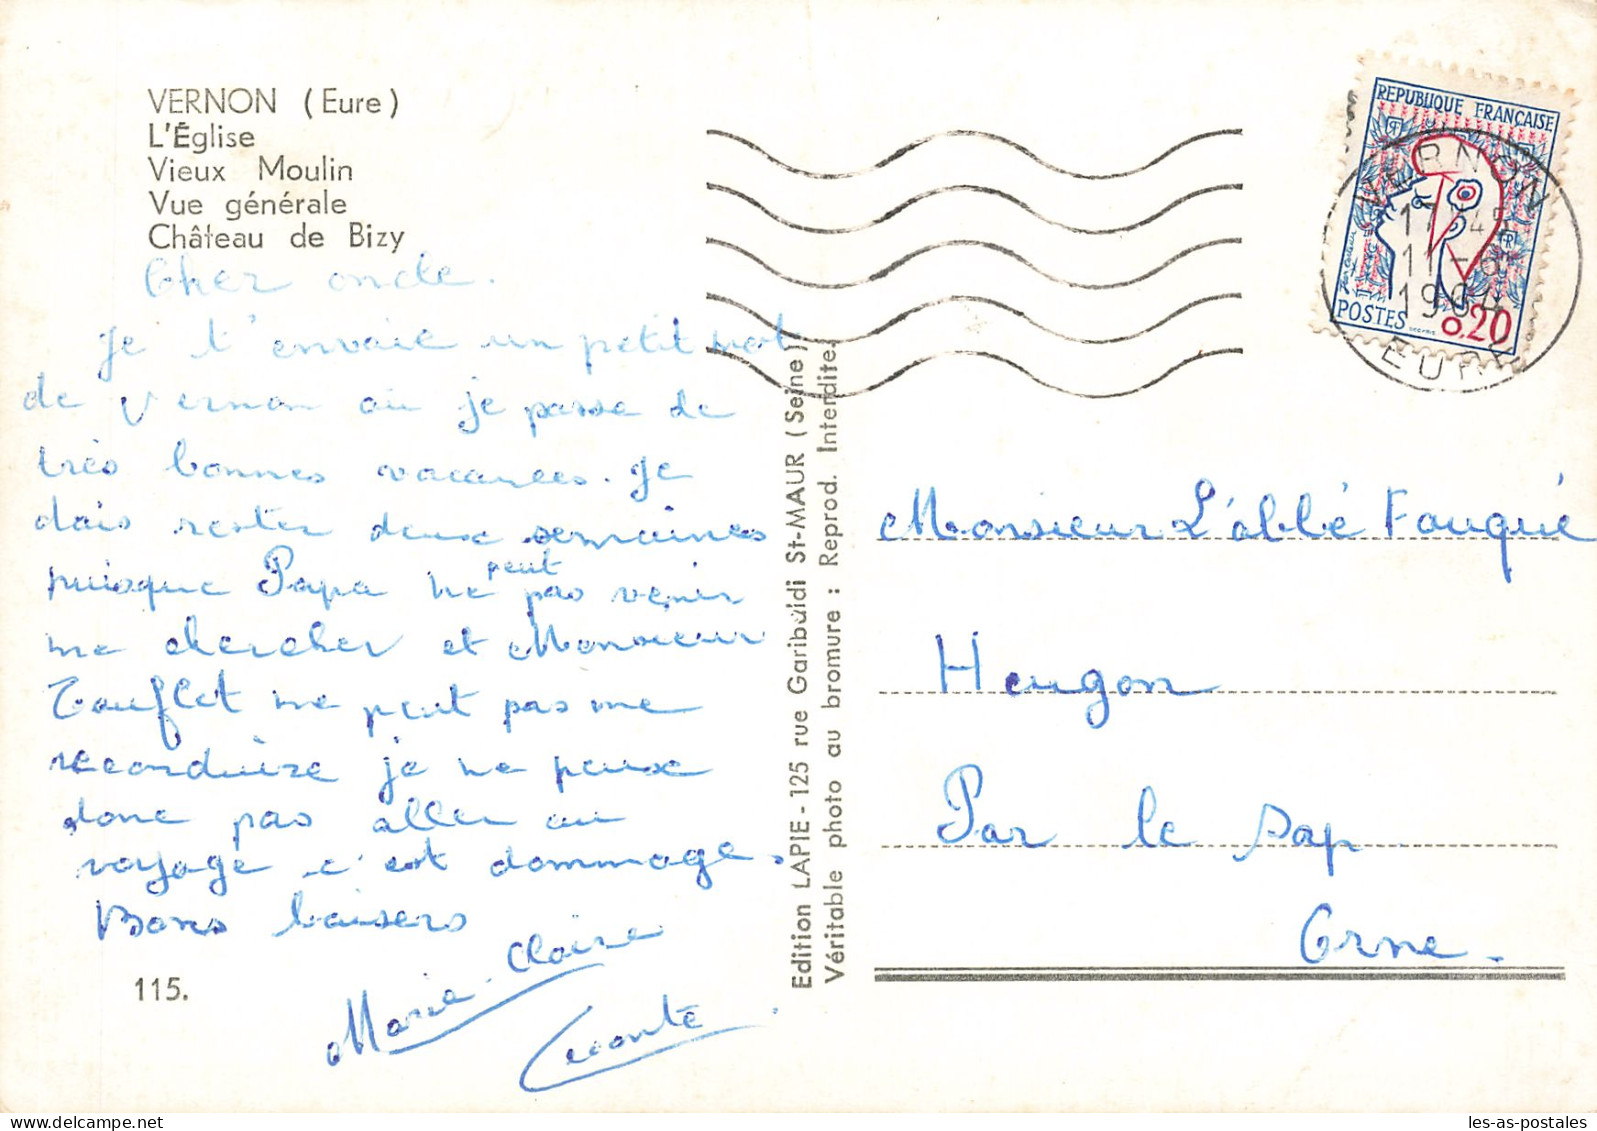 VERNON (Eure)
L'Église
Vieux Moulin
Vue générale
Château de Bizy
Cher oncle.
Je t'envoie un petit mot
de Vernon où je passe de
très bonnes vacances. Je
dois rester deux semaines
puisque Papa ne peut pas venir
me chercher et Monsieur
Touflet ne peut pas me
reconduire je ne peux
donc pas aller au
voyage c'est dommage.
Bons baisers
Marie-Claire
Leconte
115.
Edition LAPIE - 125 rue Garibaldi St-MAUR (Seine)
Véritable photo au bromure : Reprod. Interdite.
REPUBLIQUE FRANÇAISE
POSTES
0.20
VERNON
17 45
11-6
1964
EURE
Monsieur L'abbé Fouqué
Heugon
Par le sap
Orne.
les-as-postales